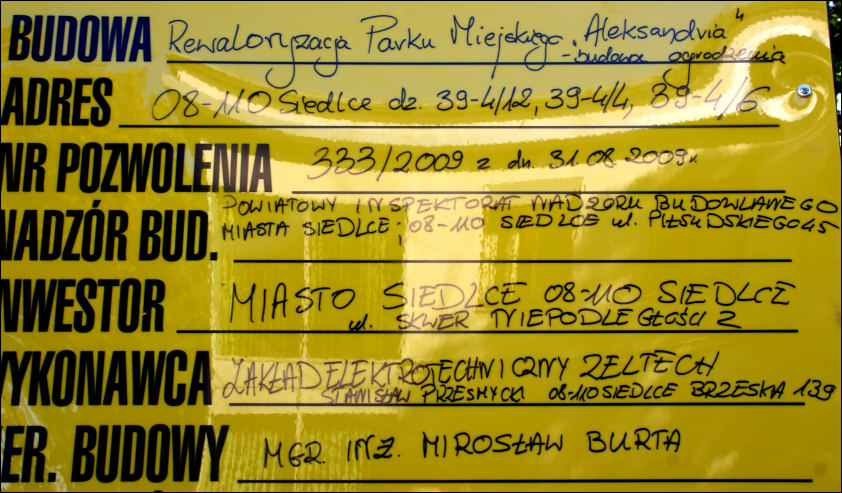 BUDOWA Rewaloryzacja Parku Miejskiego „Aleksandria"
- budowa ogrodzenia
ADRES 08-110 Siedlce dz. 39-4/12, 39-4/4, 39-4/6
NR POZWOLENIA 333/2009 z dn. 31.08.2009r.
POWIATOWY INSPEKTORAT NADZORU BUDOWLANEGO
NADZÓR BUD. MIASTA SIEDLCE; 08-110 SIEDLCE ul. PIŁSUDSKIEGO 45
INWESTOR MIASTO SIEDLCE 08-110 SIEDLCE
ul. SKWER NIEPODLEGŁOŚCI 2
WYKONAWCA ZAKŁAD ELEKTROTECHNICZNY ZELTECH
STANISŁAW PRZESMYCKI 08-110 SIEDLCE BRZESKA 139
IER. BUDOWY MGR. INŻ. MIROSŁAW BURTA